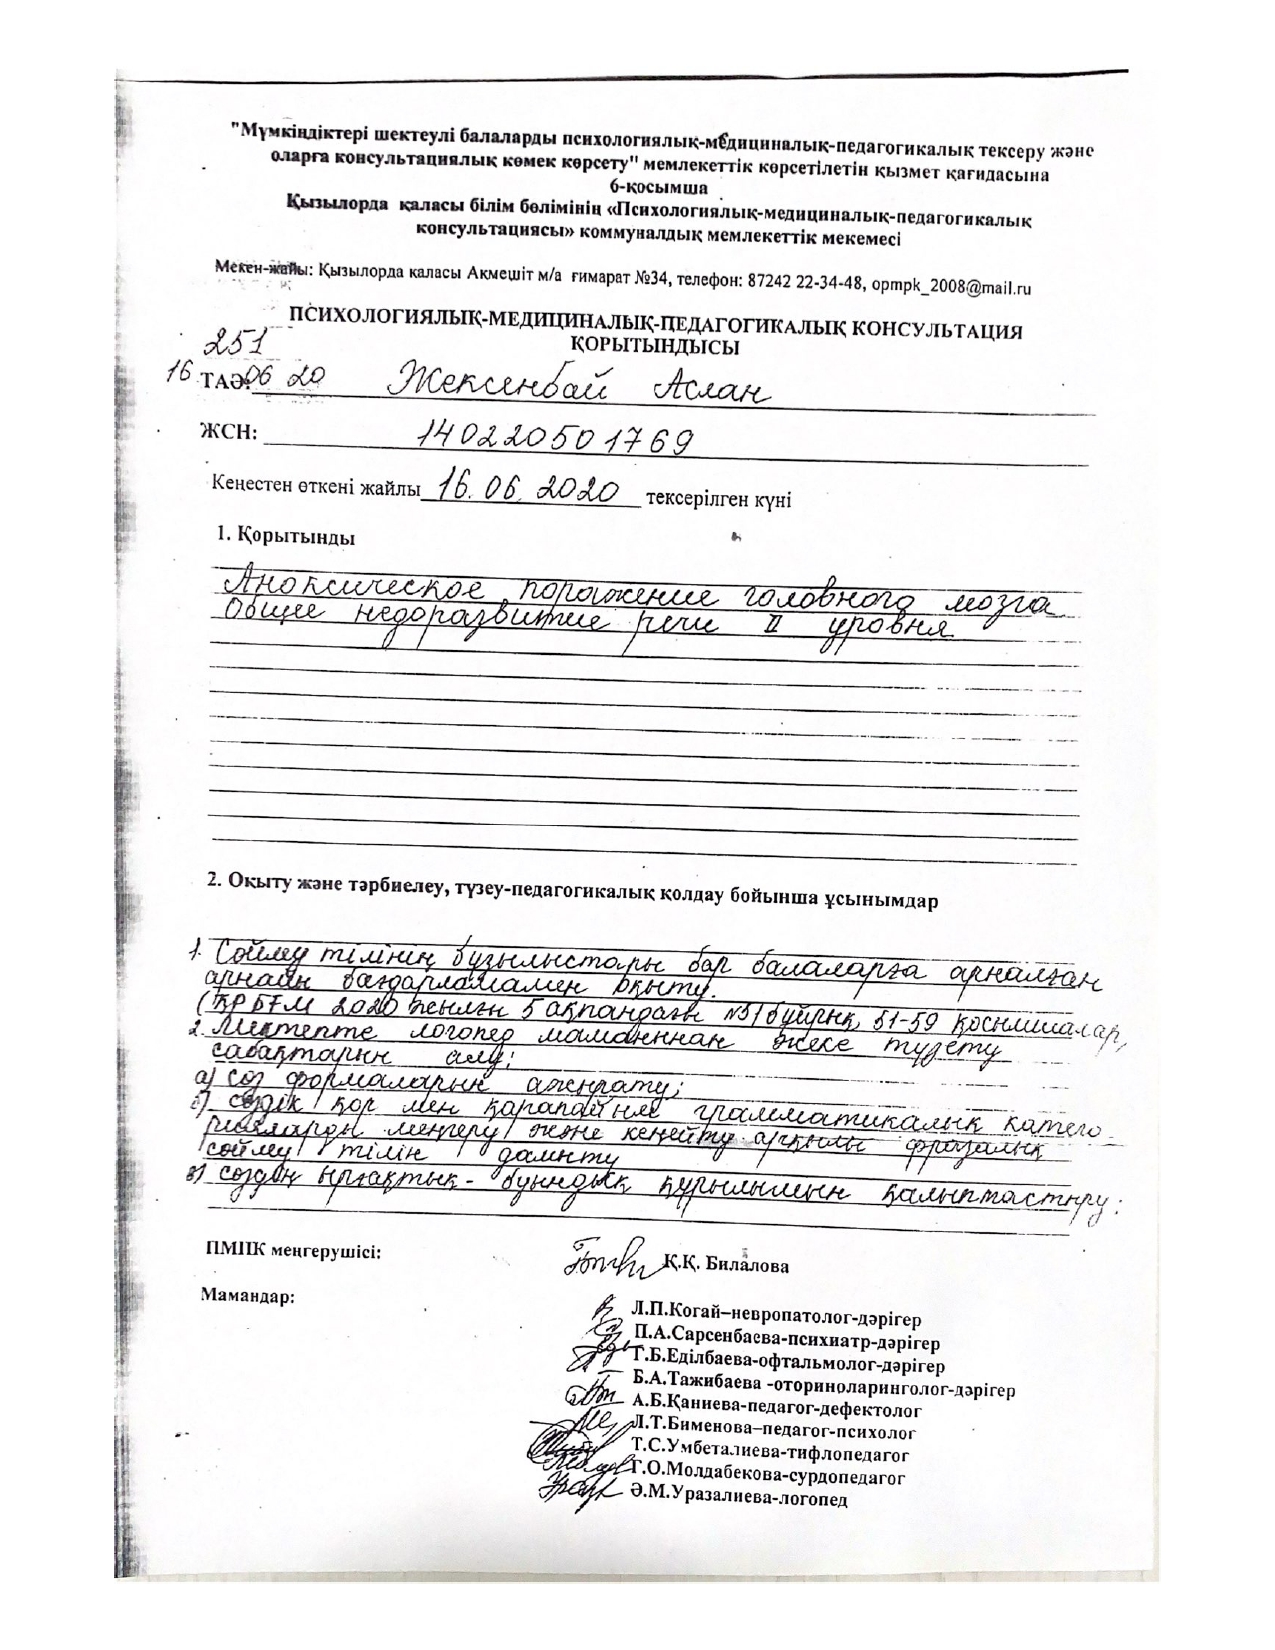 "Мүмкіндіктері шектеулі балаларды психологиялық-медициналық-педагогикалық тексеру және
оларға консультациялық көмек көрсету" мемлекеттік көрсетілетін қызмет қағидасына
6-қосымша
Қызылорда қаласы білім бөлімінің «Психологиялық-медициналық-педагогикалық
консультациясы» коммуналдық мемлекеттік мекемесі
Мекен-жайы: Қызылорда каласы Ақмешіт м/а ғимарат №34, телефон: 87242 22-34-48, opmpk_2008@mail.ru
ПСИХОЛОГИЯЛЫҚ-МЕДИЦИНАЛЫҚ-ПЕДАГОГИКАЛЫҚ КОНСУЛЬТАЦИЯ
ҚОРЫТЫНДЫСЫ
251
16 06 20
ТАӘ: Жексенбай Аслан
ЖСН: 140220501769
Кеңестен өткені жайлы 16.06.2020 тексерілген күні
1. Қорытынды
Аноксическое поражение головного мозга
Общее недоразвитие речи II уровня
2. Оқыту және тәрбиелеу, түзеу-педагогикалық қолдау бойынша ұсынымдар
1. Сөйлеу тілінің бұзылыстары бар балаларға арналған
арнайы бағдарламамен оқыту.
(ҚР БҒМ 2020 жылғы 5 ақпандағы №51 бұйрық, 51-59 қосымшалар,
2. Мектепте логопед маманнан жеке түзету
сабақтарын алу:
а) сөз формаларын ажырату;
б) сөздік қор мен қарапайым грамматикалық катего-
рияларды меңгеру және кеңейту арқылы фразалық
сөйлеу тілін дамыту
в) сөздің ырғақтық-буындық құрылымын қалыптастыру:
ПМПК меңгерушісі: Қ.Қ. Билалова
Мамандар:
Л.П.Когай–невропатолог-дәрігер
П.А.Сарсенбаева-психиатр-дәрігер
Г.Б.Еділбаева-офтальмолог-дәрігер
Б.А.Тажибаева -оториноларинголог-дәрігер
А.Б.Қаниева-педагог-дефектолог
Л.Т.Бименова–педагог-психолог
Т.С.Умбеталиева-тифлопедагог
Г.О.Молдабекова-сурдопедагог
Ә.М.Уразалиева-логопед